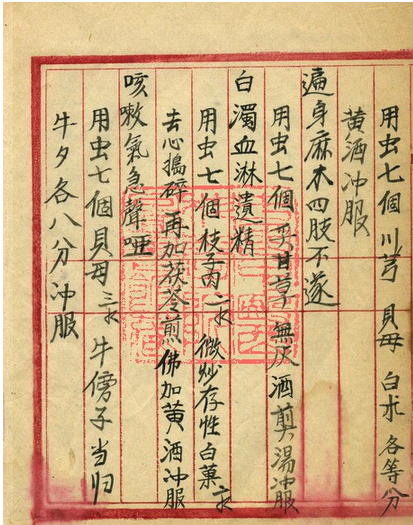 用虫七個川芎 貝母 白朮各等分
黄酒冲服
遍身麻木四肢不遂
用虫七個炙甘草無灰酒煎湯冲服
白濁血淋遺精
用虫七個枝子肉二钱 微炒存性白菓二钱
去心搗碎再加茯苓煎佛加黄酒冲服
咳嗽氣急聲啞
用虫七個貝母三钱 牛傍子当归
牛夕各八分冲服